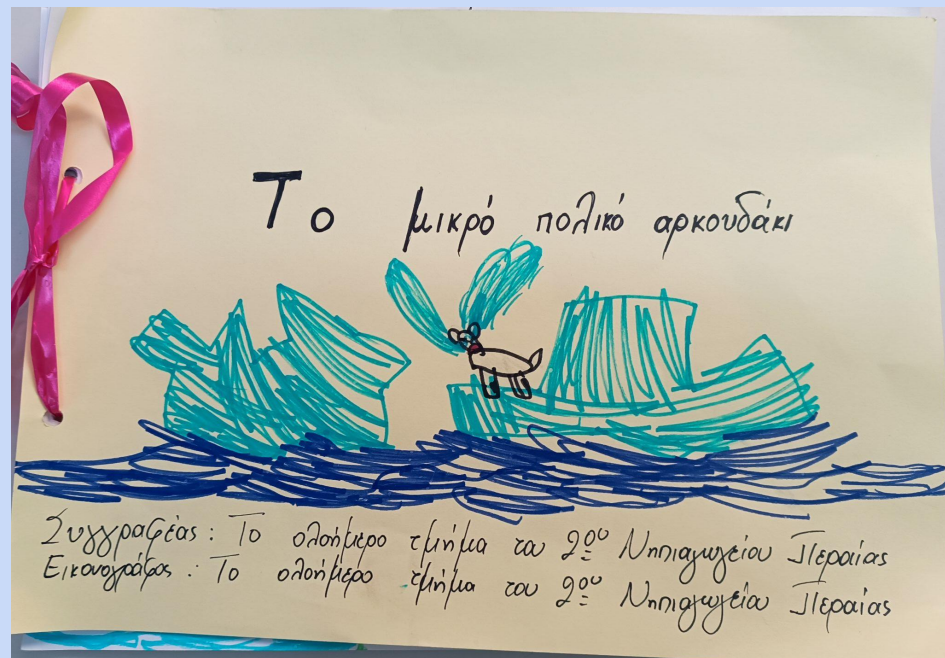 Το μικρό πολικό αρκουδάκι
Συγγραφέας: Το ολοήμερο τμήμα του 2ου Νηπιαγωγείου Περαίας
Εικονογράφος: Το ολοήμερο τμήμα του 2ου Νηπιαγωγείου Περαίας